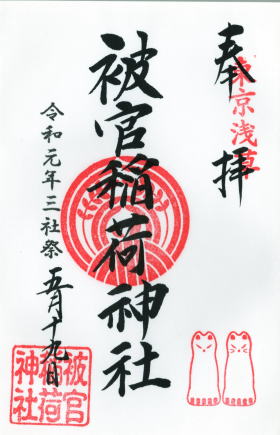 奉拝
東京浅草
被官稲荷神社
令和元年三社祭
五月十九日
被官
稲荷
神社